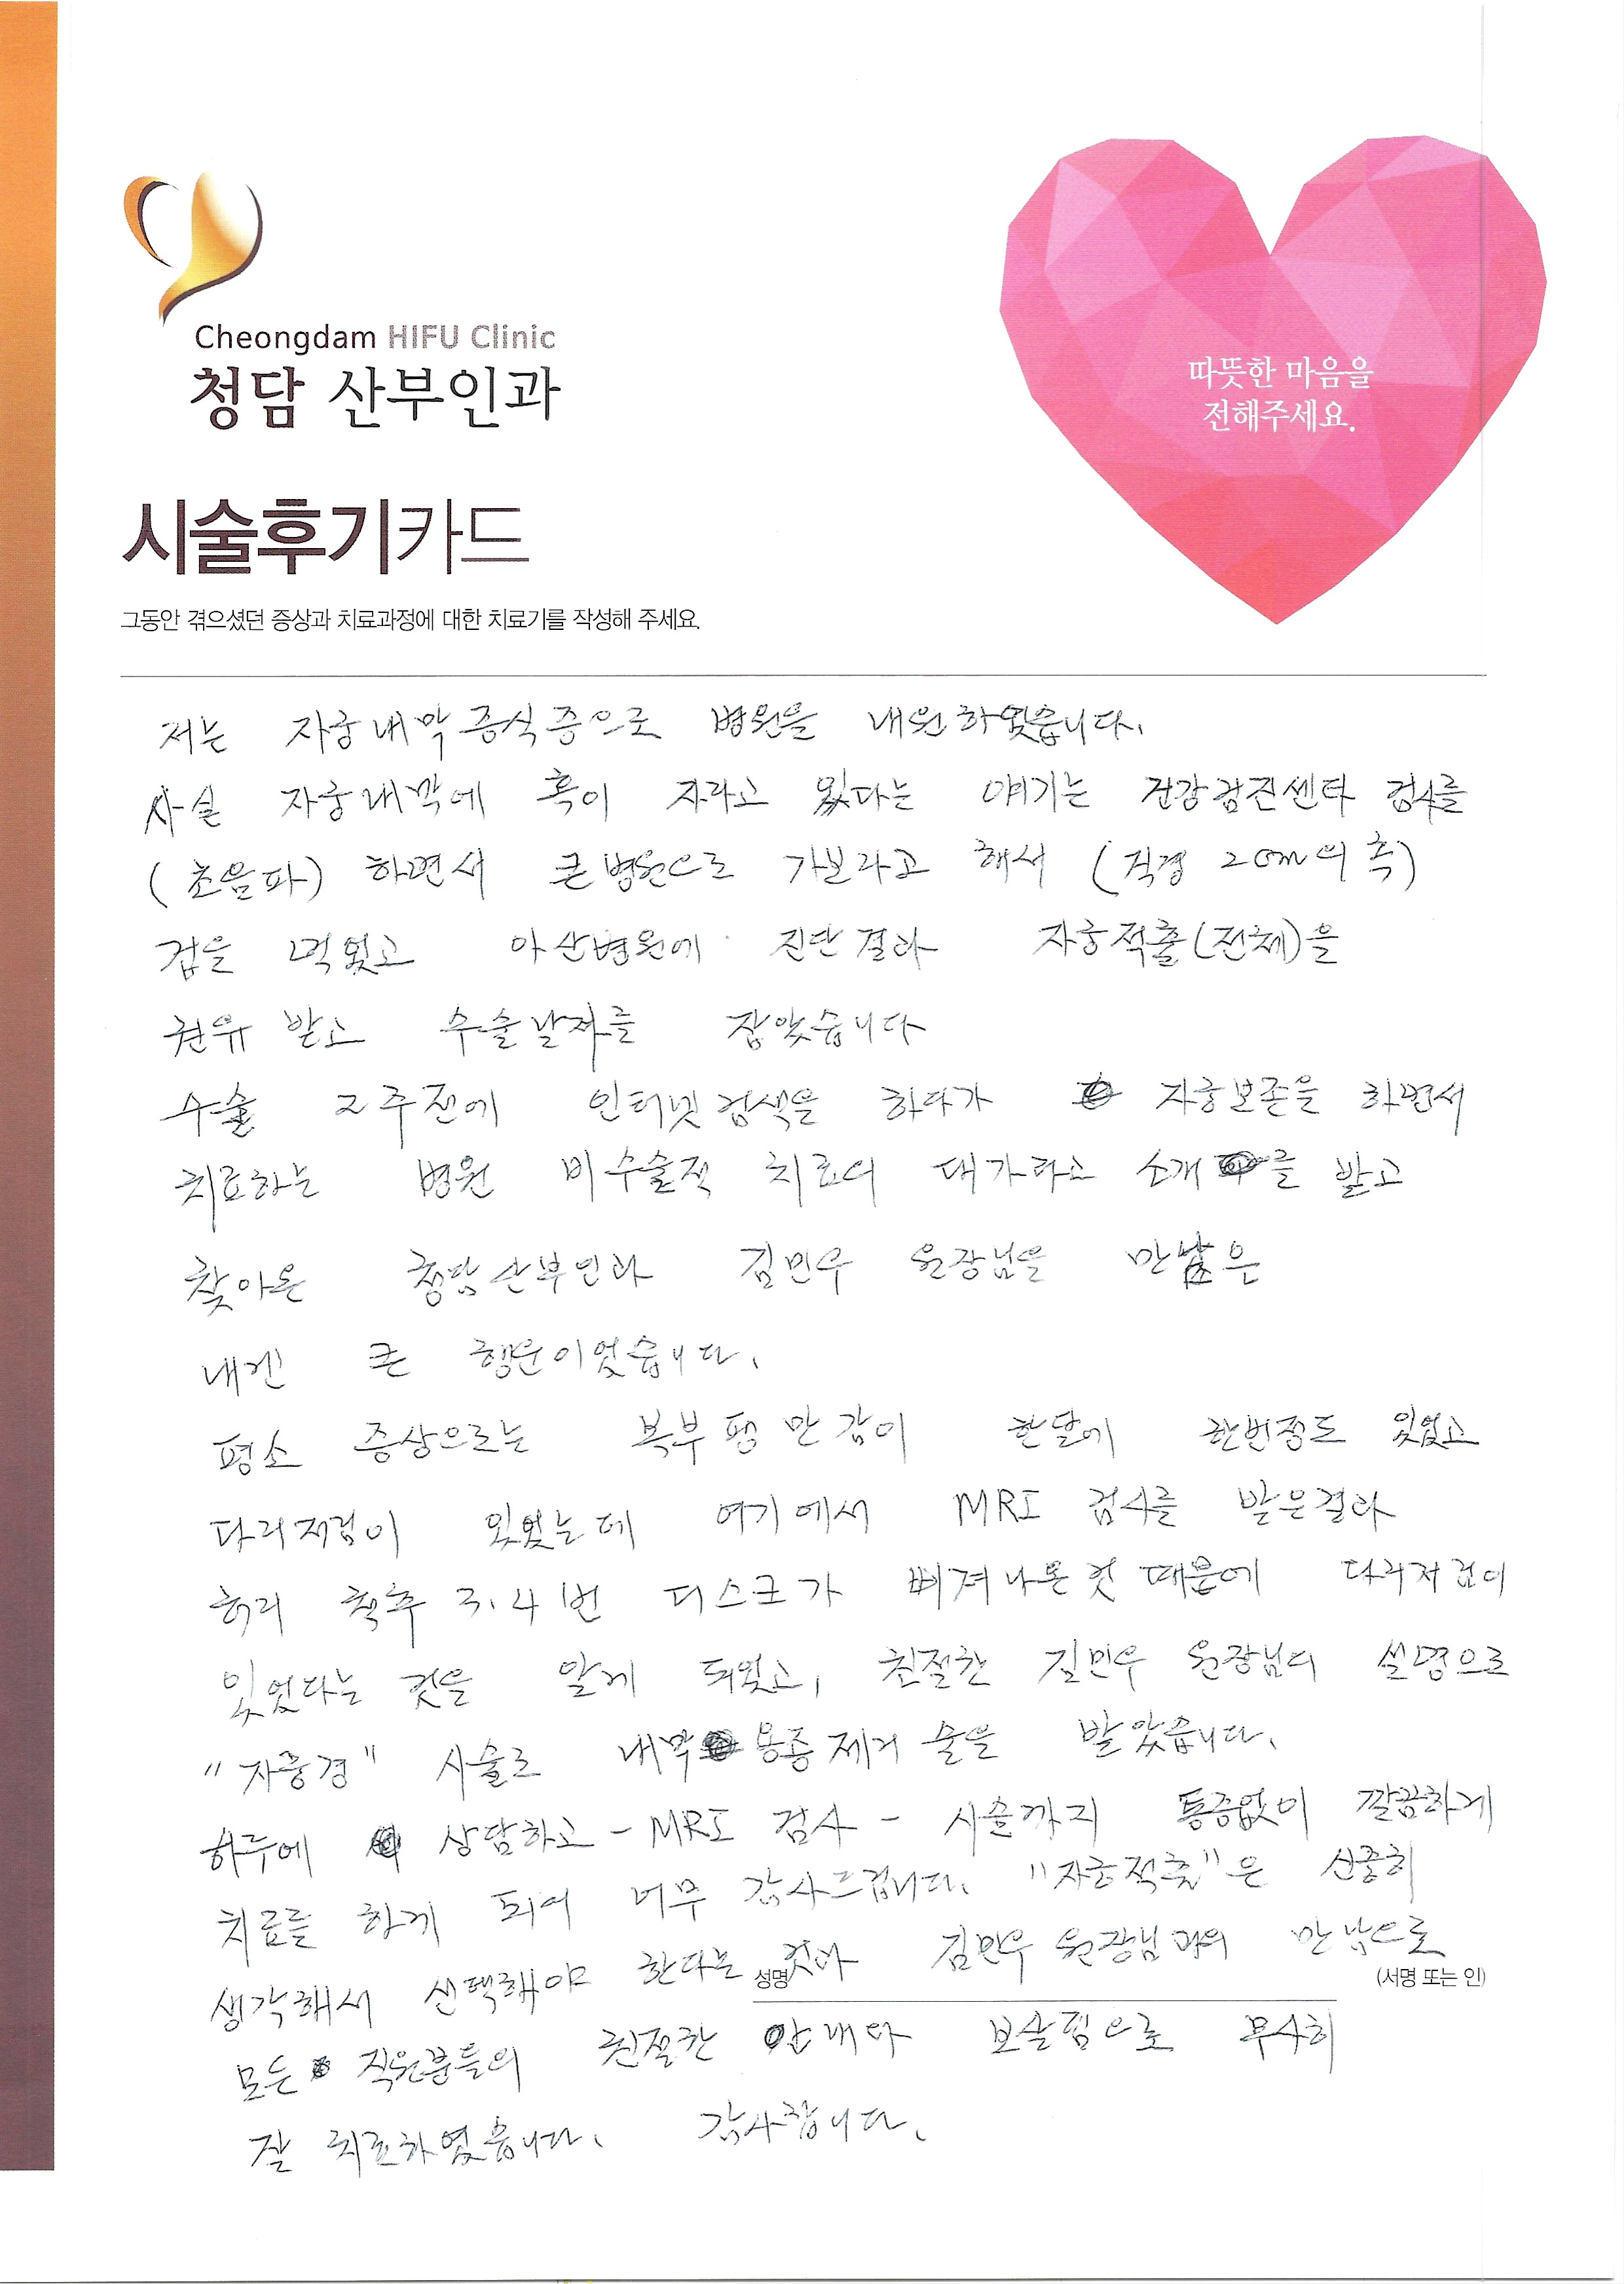 Cheongdam HIFU Clinic
청담 산부인과
따뜻한 마음을
전해주세요.
시술후기카드
그동안 겪으셨던 증상과 치료과정에 대한 치료기를 작성해 주세요.
저는 자궁내막증식증으로 병원을 내원하였습니다.
사실 자궁내막에 혹이 자라고 있다는 얘기는 건강검진센타 검사를
(초음파) 하면서 큰병원으로 가보라고 해서 (직경 2cm의 혹)
겁을 먹었고 아산병원에 진단결과 자궁적출(전체)을
권유 받고 수술날짜를 잡았습니다
수술 2주전에 인터넷검색을 하다가 자궁보존을 하면서
치료하는 병원 비수술적 치료의 대가라고 소개를 받고
찾아온 청담산부인과 김민우 원장님을 만남은
내겐 큰 행운이었습니다.
평소 증상으로는 복부팽만감이 한달에 한번정도 있었고
다리저림이 있었는데 여기에서 MRI 검사를 받은결과
허리 척추 3.4번 디스크가 삐져나온것 때문에 다리저림이
있었다는 것을 알게 되었고, 친절한 김민우 원장님의 설명으로
"자궁경" 시술로 내막 용종제거 술을 받았습니다.
하루에 상담하고 - MRI 검사 - 시술까지 통증없이 깔끔하게
치료를 하게 되어 너무 감사드립니다. "자궁적출"은 신중히
생각해서 선택해야 한다는 것과 김민우 원장님과의 만남으로
성명
(서명 또는 인)
모든 직원분들의 친절한 안내와 보살핌으로 무사히
잘 치료하였습니다. 감사합니다.